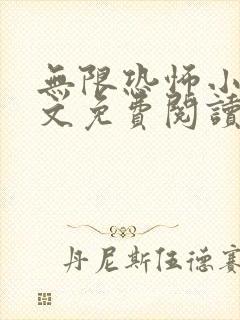 無限恐怖小
文免費閱讀
丹尼斯伍德賽